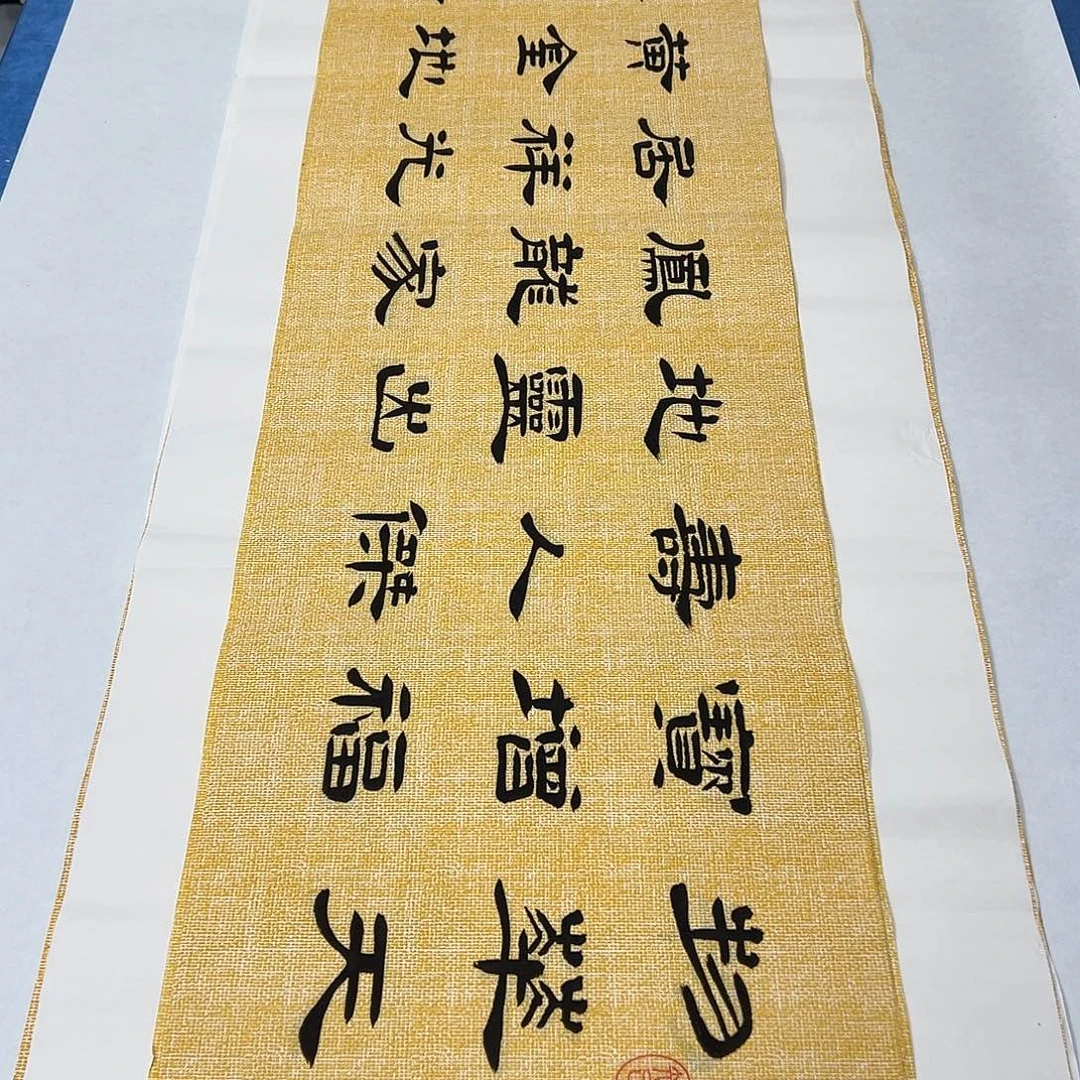 物華天
寶增福
壽人傑
地靈出
鳳龍家
居祥光
黃金地